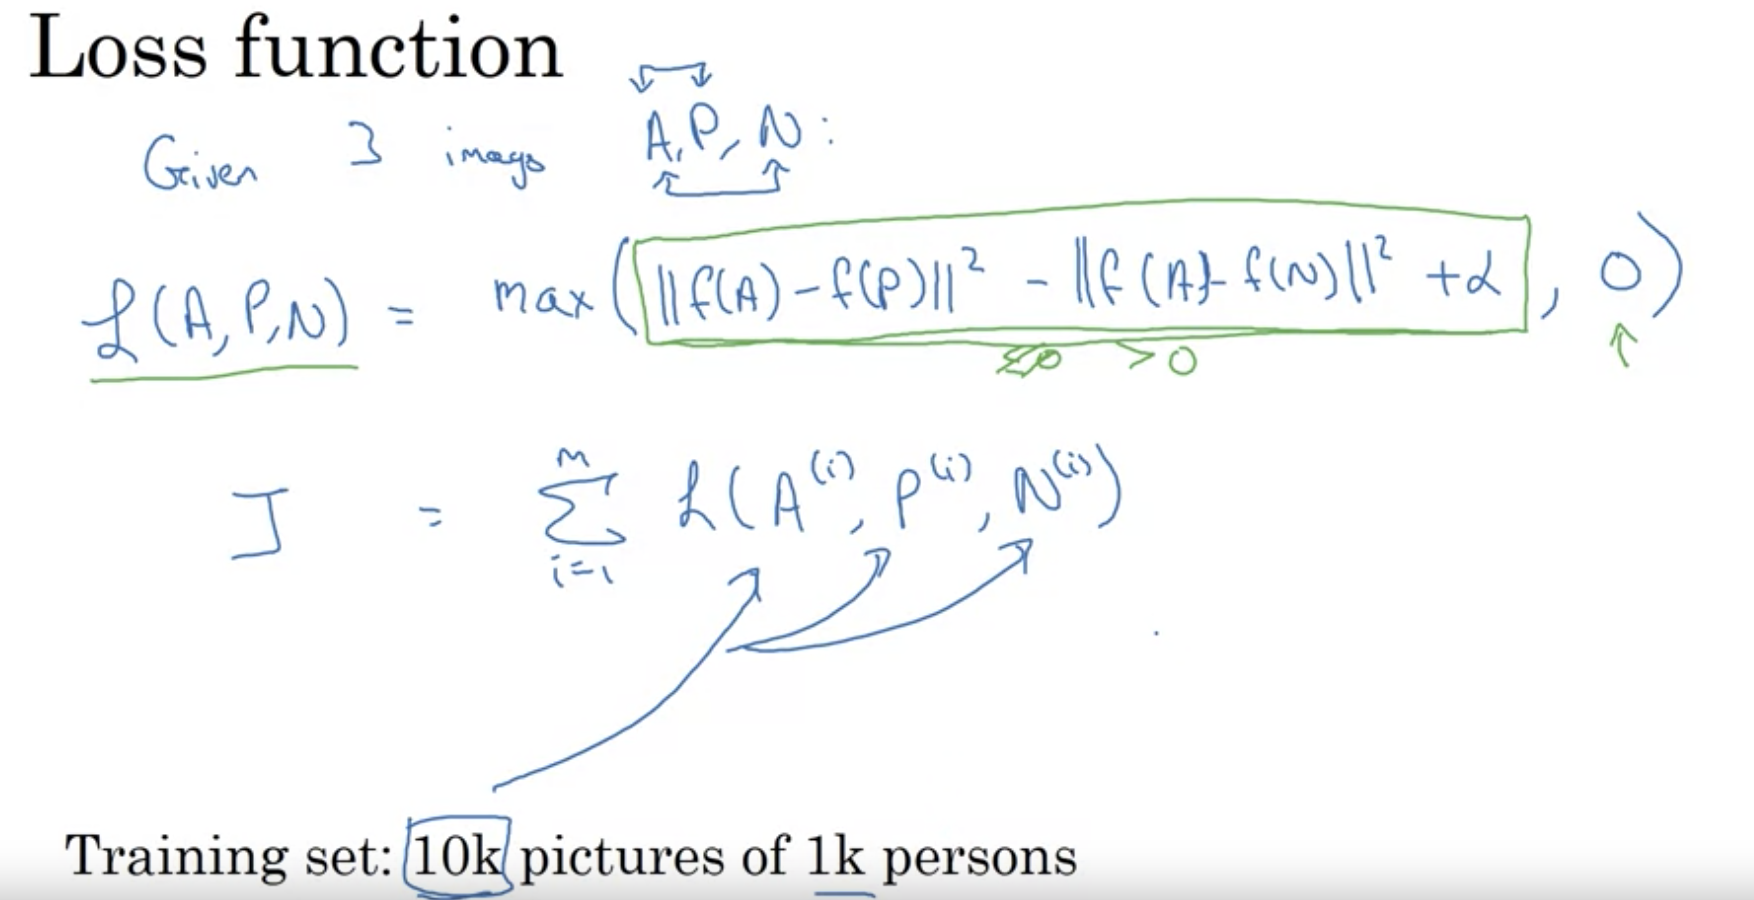 Loss function
Given 3 images A, P, N:
L(A, P, N) = max(||f(A) - f(P)||² - ||f(A) - f(N)||² + α, 0)
≤0 >0
M
J = Σ L(A⁽ⁱ⁾, P⁽ⁱ⁾, N⁽ⁱ⁾)
i=1
Training set: 10k pictures of 1k persons